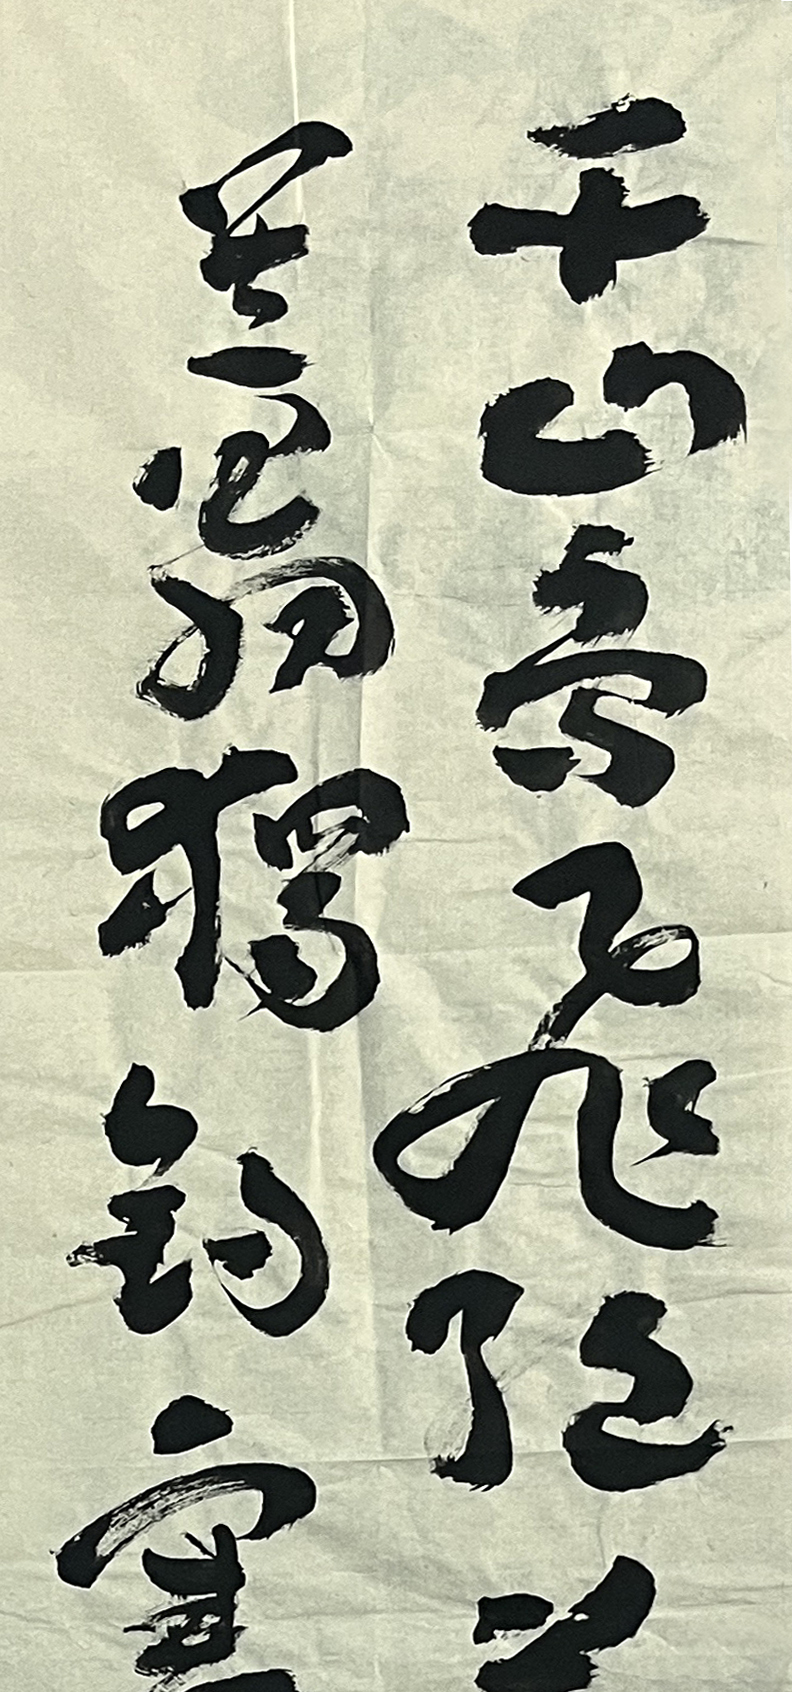 千山鳥飛絕
笠翁獨釣寒